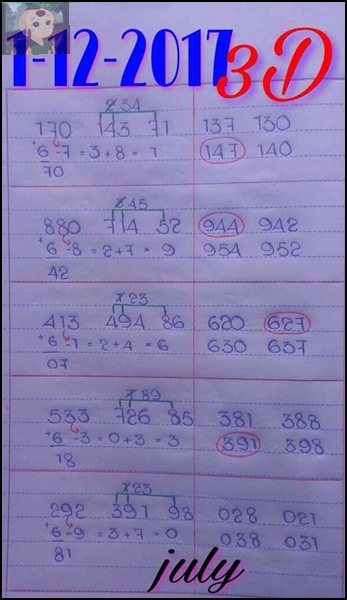 1-12-2017 3D
234
170 143 71 137 130
+6 -7 = 3+8 = 1 147 140
70
845
880 714 52 944 942
+6 -8 = 2+7 = 9 954 952
42
123
413 494 86 620 627
+6 -1 = 2+4 = 6 630 637
07
789
533 726 85 381 388
+6 -3 = 0+3 = 3 391 398
18
123
292 391 98 028 021
+6 -9 = 3+7 = 0 038 031
81
july